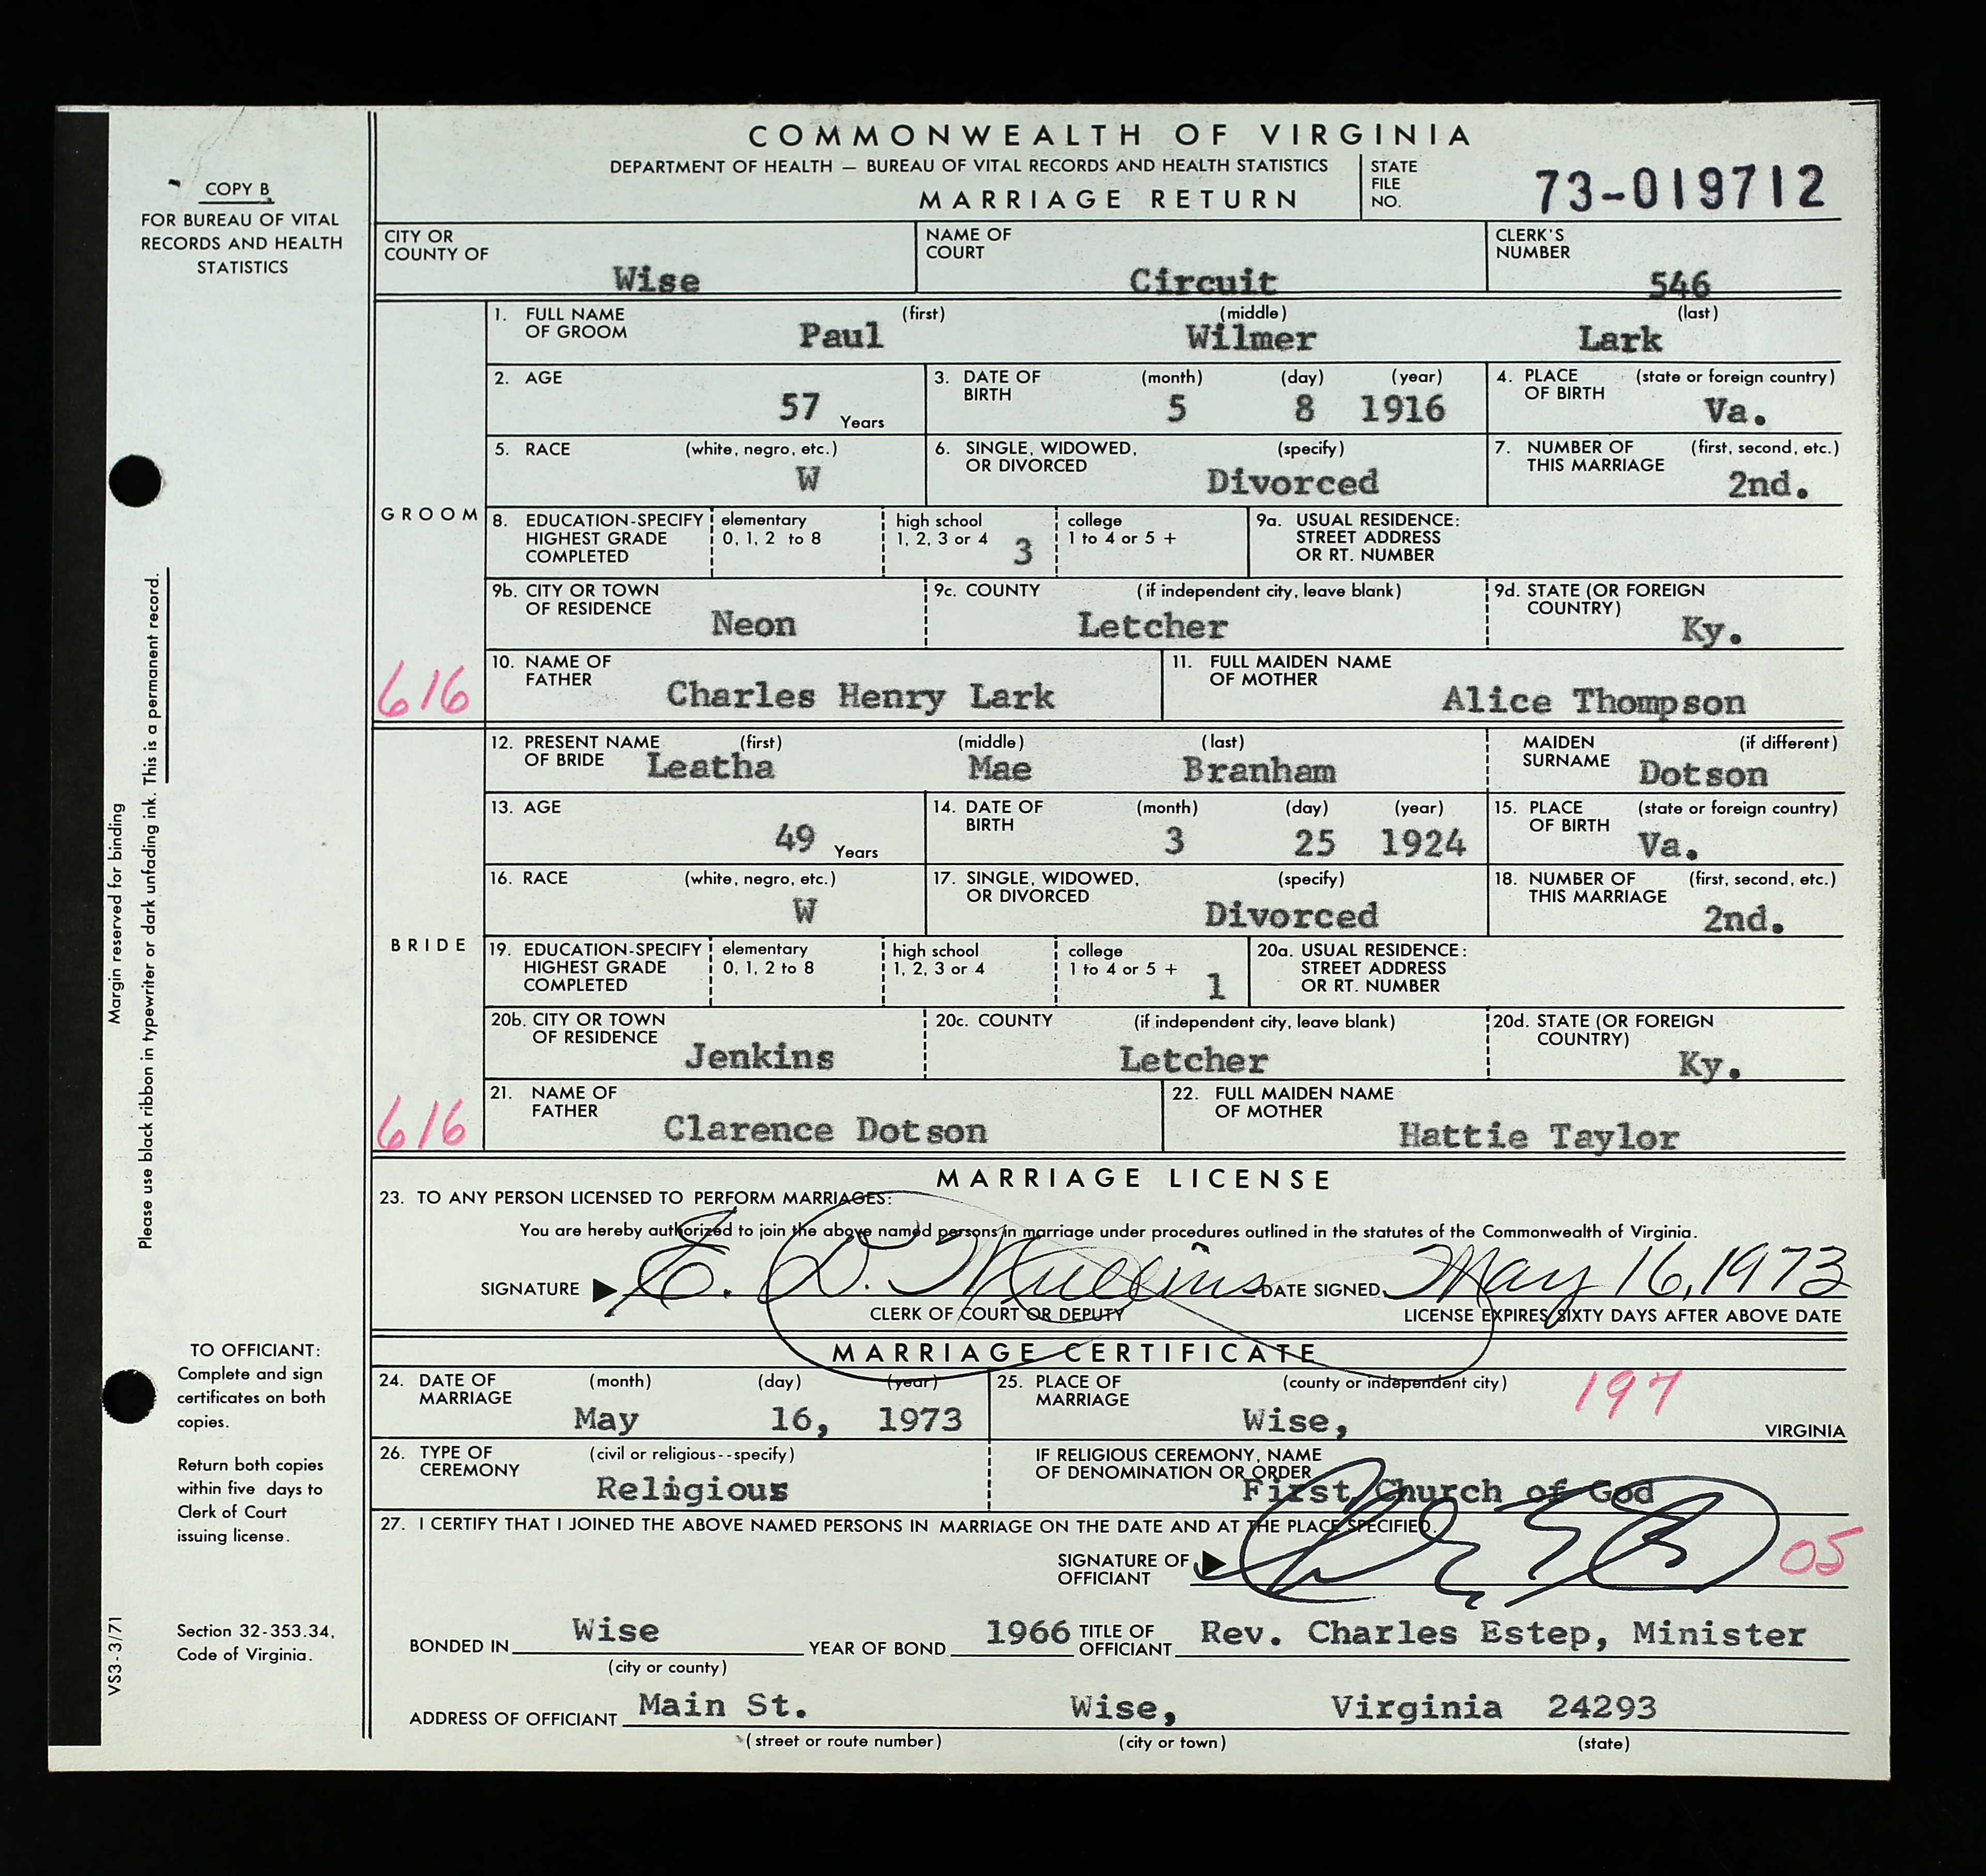 COMMONWEALTH OF VIRGINIA
DEPARTMENT OF HEALTH — BUREAU OF VITAL RECORDS AND HEALTH STATISTICS
MARRIAGE RETURN
STATE FILE NO. 73-019712
COPY B
FOR BUREAU OF VITAL
RECORDS AND HEALTH
STATISTICS
CITY OR COUNTY OF Wise
NAME OF COURT Circuit
CLERK'S NUMBER 546
GROOM
1. FULL NAME OF GROOM (first) Paul (middle) Wilmer (last) Lark
2. AGE 57 Years
3. DATE OF BIRTH (month) 5 (day) 8 (year) 1916
4. PLACE OF BIRTH (state or foreign country) Va.
5. RACE (white, negro, etc.) W
6. SINGLE, WIDOWED, OR DIVORCED (specify) Divorced
7. NUMBER OF THIS MARRIAGE (first, second, etc.) 2nd.
8. EDUCATION-SPECIFY HIGHEST GRADE COMPLETED elementary 0, 1, 2 to 8 high school 1, 2, 3 or 4 3 college 1 to 4 or 5 +
9a. USUAL RESIDENCE: STREET ADDRESS OR RT. NUMBER
9b. CITY OR TOWN OF RESIDENCE Neon
9c. COUNTY (if independent city, leave blank) Letcher
9d. STATE (OR FOREIGN COUNTRY) Ky.
616
10. NAME OF FATHER Charles Henry Lark
11. FULL MAIDEN NAME OF MOTHER Alice Thompson
BRIDE
12. PRESENT NAME OF BRIDE (first) Leatha (middle) Mae (last) Branham
MAIDEN SURNAME (if different) Dotson
13. AGE 49 Years
14. DATE OF BIRTH (month) 3 (day) 25 (year) 1924
15. PLACE OF BIRTH (state or foreign country) Va.
16. RACE (white, negro, etc.) W
17. SINGLE, WIDOWED, OR DIVORCED (specify) Divorced
18. NUMBER OF THIS MARRIAGE (first, second, etc.) 2nd.
19. EDUCATION-SPECIFY HIGHEST GRADE COMPLETED elementary 0, 1, 2 to 8 high school 1, 2, 3 or 4 college 1 to 4 or 5 + 1
20a. USUAL RESIDENCE: STREET ADDRESS OR RT. NUMBER
20b. CITY OR TOWN OF RESIDENCE Jenkins
20c. COUNTY (if independent city, leave blank) Letcher
20d. STATE (OR FOREIGN COUNTRY) Ky.
616
21. NAME OF FATHER Clarence Dotson
22. FULL MAIDEN NAME OF MOTHER Hattie Taylor
MARRIAGE LICENSE
23. TO ANY PERSON LICENSED TO PERFORM MARRIAGES:
You are hereby authorized to join the above named persons in marriage under procedures outlined in the statutes of the Commonwealth of Virginia.
SIGNATURE E. D. Mullins DATE SIGNED May 16, 1973
CLERK OF COURT OR DEPUTY
LICENSE EXPIRES SIXTY DAYS AFTER ABOVE DATE
MARRIAGE CERTIFICATE
24. DATE OF MARRIAGE (month) May (day) 16, (year) 1973
25. PLACE OF MARRIAGE (county or independent city) Wise, 197 VIRGINIA
26. TYPE OF CEREMONY (civil or religious--specify) Religious
IF RELIGIOUS CEREMONY, NAME OF DENOMINATION OR ORDER First Church of God
27. I CERTIFY THAT I JOINED THE ABOVE NAMED PERSONS IN MARRIAGE ON THE DATE AND AT THE PLACE SPECIFIED.
SIGNATURE OF OFFICIANT
05
BONDED IN Wise YEAR OF BOND 1966 TITLE OF OFFICIANT Rev. Charles Estep, Minister
(city or county)
ADDRESS OF OFFICIANT Main St. Wise, Virginia 24293
(street or route number) (city or town) (state)
Margin reserved for binding
Please use black ribbon in typewriter or dark unfading ink. This is a permanent record.
TO OFFICIANT:
Complete and sign
certificates on both
copies.
Return both copies
within five days to
Clerk of Court
issuing license.
Section 32-353.34,
Code of Virginia.
VS3-3/71